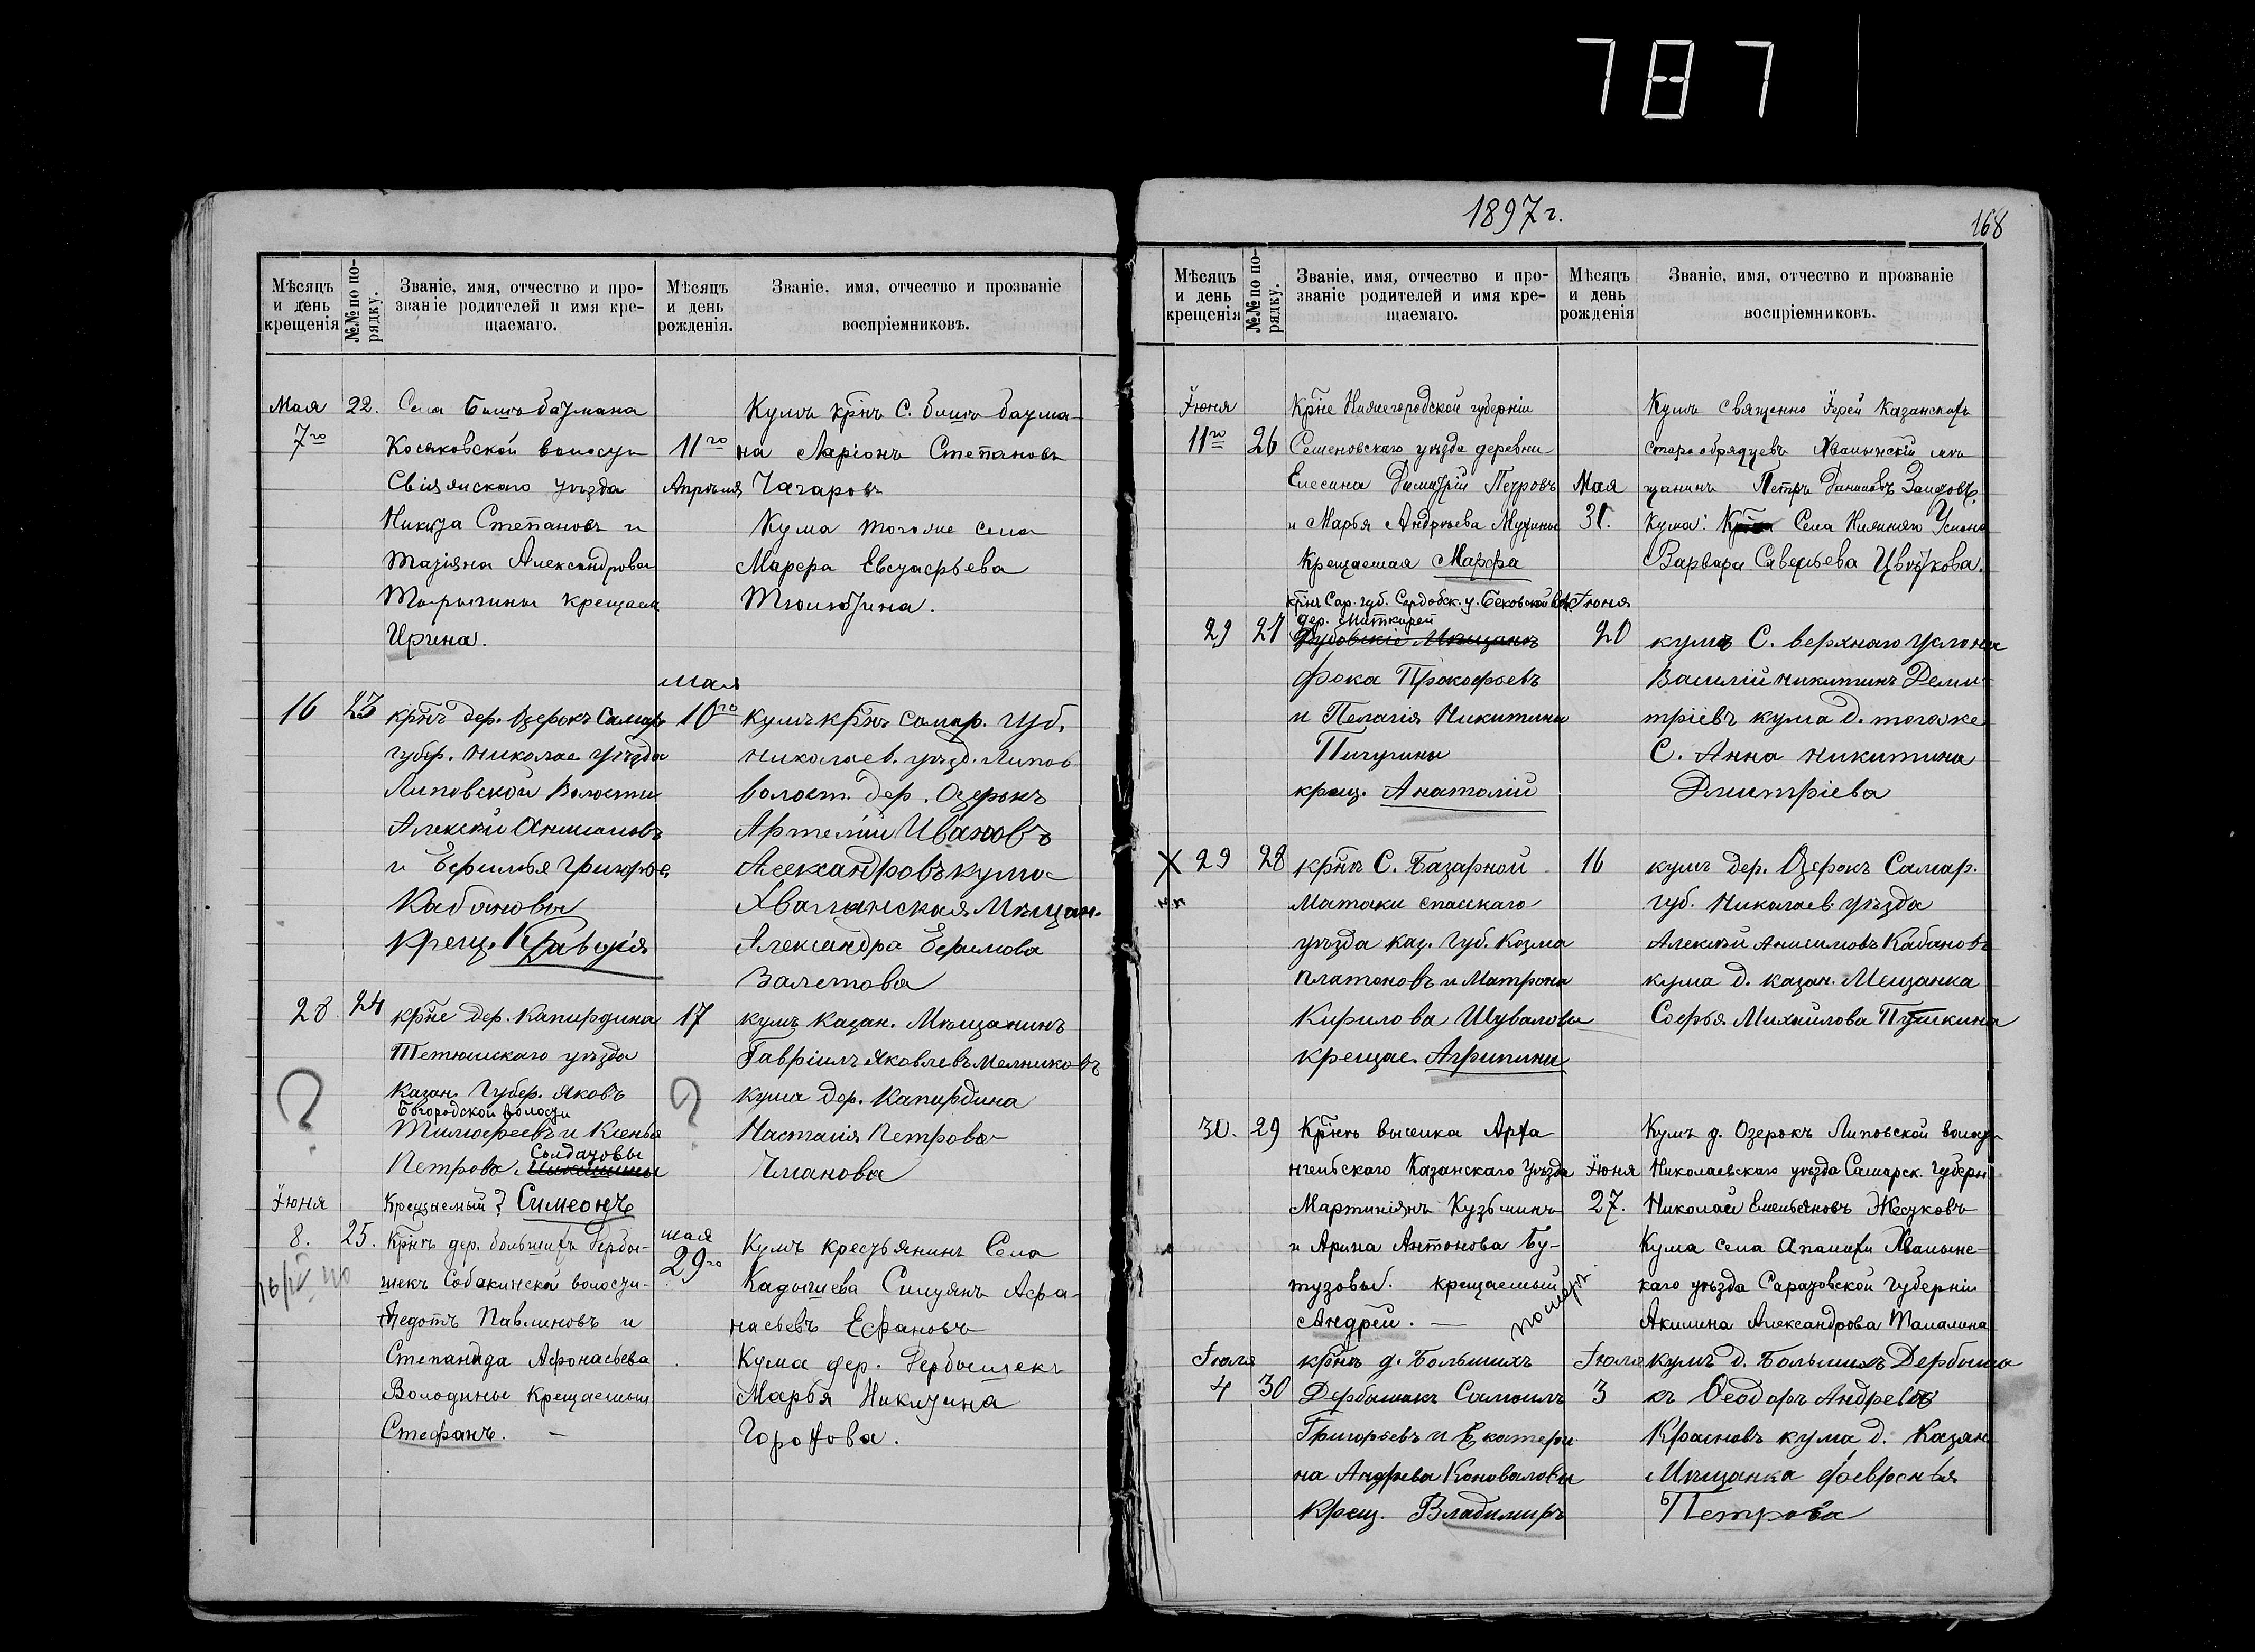 787
1897 г.
168
Мѣсяцъ и день крещенія
№№ по порядку.
Званіе, имя, отчество и про-
званіе родителей и имя кре-
щаемаго.
Мѣсяцъ и день рожденія.
Званіе, имя, отчество и прозваніе
воспріемниковъ.
Мая 22. Села Бишъ баумана
7го Косяковской волости
Свіяжскаго уѣзда
Никита Степановъ и
Татіяна Александрова
крещаем
Ирина.
11го
Апрѣля
Кумъ кр̅нъ С. бишъ баума-
на Ларіонъ Степановъ
Чагаровъ
Кума тогоже села
Марфа Евстафьева
16 23 кр̅нъ дер. Озерокъ Самар
губер. Николае уѣзда
Липовской Волости
Алексѣй Анисимовъ
и Ефимья Григорье
Кабановы
крещ.
мая
10го
Кумъ кр̅нъ самар. губ.
Николаев. уѣзд. Липов
волост. дер. Озерокъ
Артемій Ивановъ
Александровъ кума
Хвалынская Мѣщан.
Александра Ефимова
Залетова
28. 24 кр̅не дер. Капирдина
Тетюшскаго уѣзда
Казан. Губер. Яковъ
Богородской волости
Тимофеевъ и Ксенья
Солдатовы
Петрова
Крещаемый ? Симеонъ
17
?
кумъ казан. Мѣщанинъ
Гавріилъ Яковлевъ Мелниковъ
кума дер. Капирдина
Настасія Петрова
Чманова
?
Іюня
8. 25. Кр̅нъ дер. большихъ Дербы-
шекъ Собакинской волости-
Федотъ Павлиновъ и
Степанида Афонасьева
Володины Крещаемый
Стефанъ. —
мая
29го
Кумъ крестьянинъ Села
Кадышева Силуянъ Афа-
насьевъ Ефановъ
Кума дер. Дербышекъ
Марья Никитина
Горохова.
Мѣсяцъ и день крещенія
№№ по порядку.
Званіе, имя, отчество и про-
званіе родителей и имя кре-
щаемаго.
Мѣсяцъ и день рожденія
Званіе, имя, отчество и прозваніе
воспріемниковъ.
Іюня Кр̅не Нижегородской губерніи
11го 26 Семеновскаго уѣзда деревни
Елесина Димитрій Петровъ
и Марья Андреева Мухины
Крещаемая Марфа
Мая
31.
Кумъ священно Іерей Казанскихъ
старообрядцевъ Хвалынскій мѣ
щанинъ Петръ Даниловъ Залетовъ.
Кума: Села Нижняго Услона
Варвара Савельева Цвѣткова.
кр̅нъ Сар. губ. Сердобск. у. Бековской вол
дер. Миткирей
29 27 Дубовскіе Мѣщане
Фока Прокофьевъ
и Пелагія Никитина
Пичугины
крещ. Анатолій
Іюня
20
кумъ С. верхняго Услона
Василій Никитинъ Деми-
тріевъ кума д. тогоже
С. Анна Никитина
Дмитріева
X 29 28 кр̅нъ С. Базарной
Матаки спасскаго
уѣзда каз. Губ. Козма
Платоновъ и Матрона
Кирилова Шувалова
крещае. Агрипина
16
кумъ дер. Озерокъ Самар.
губ. Николаев уѣзда
Алексѣй Анисимовъ Кабановъ
кума д. казан. Мещанка
Софья Михайлова Пушкина
30. 29 Кр̅нъ выселка Арха
нгельскаго Казанскаго Уѣзда
Мартиніянъ Кузьминъ
и Арина Антонова Бу-
тузовы. крещаемый
Андрей. —
помер
Іюня
27.
Кумъ д. Озерокъ Липовской волост
Николаевскаго уѣзда Самарск. Губерн
Николай Емельяновъ Жесуковъ
Кума села Апалихи Хвалынс-
каго уѣзда Саратовской Губерніи
Акилина Александрова Мамалина
Іюля
4 30 кр̅нъ д. Большихъ
Дербышекъ Самоилъ
Григорьевъ и Екатери
на Андрева Коновалова
Крещ. Владимиръ
Іюля
3
кумъ д. Большихъ Дербыше
къ Ѳеодоръ Андревъ
Красновъ кума д. Казан
Мѣщанка Февронья
Петрова